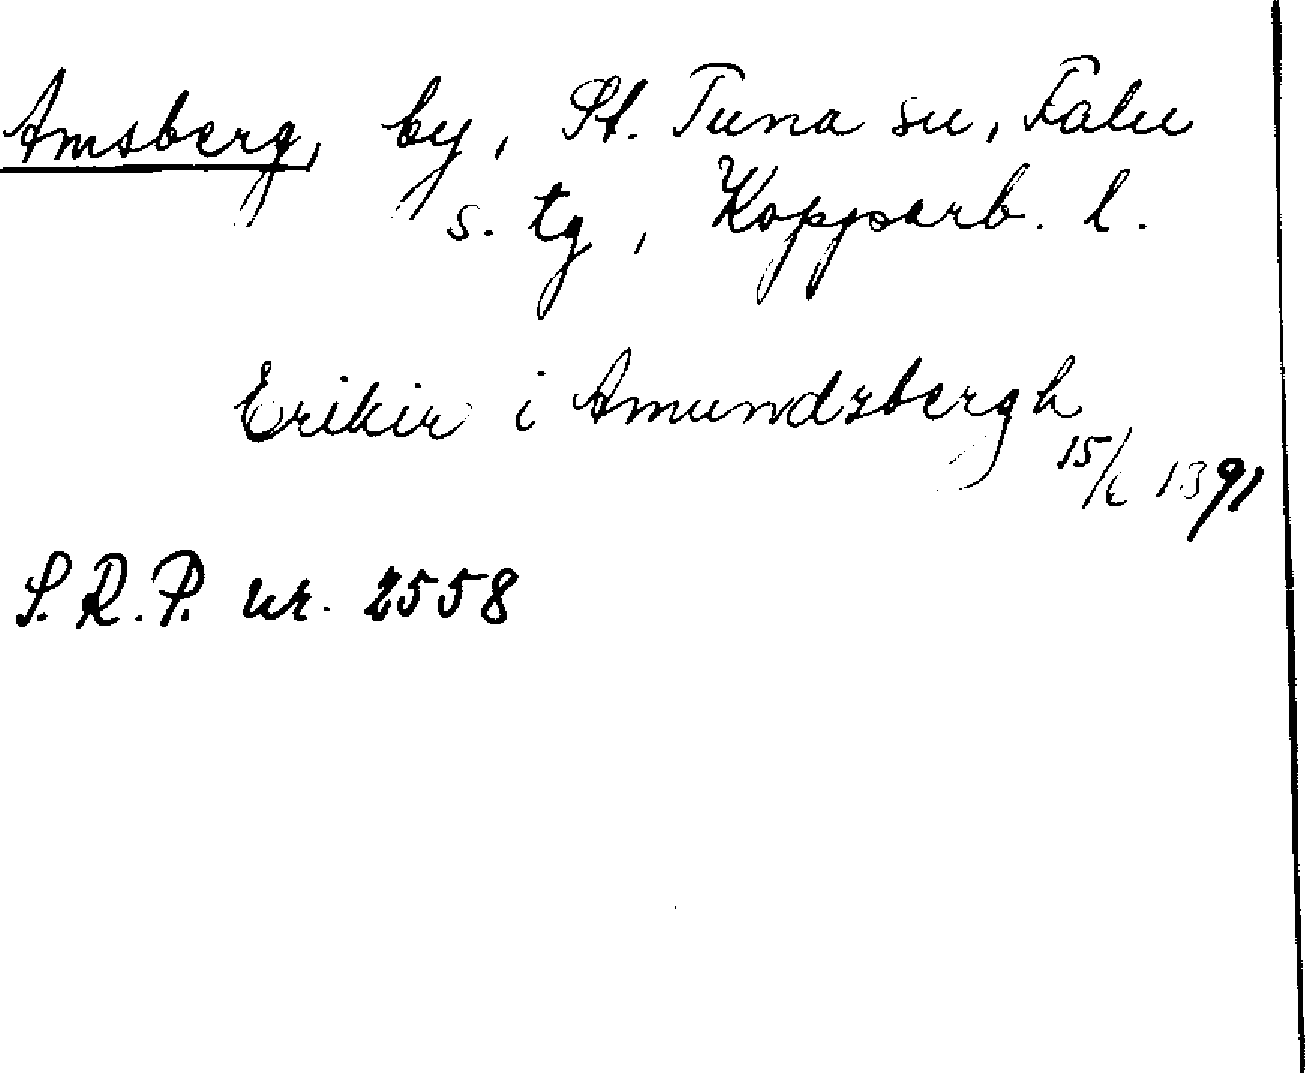 Amsberg, by, St. Tuna sn, Falu
s. tg, Kopparb. l.
Erikir i Amundzbergh
15/6 1391
S.R.P. nr. 2558